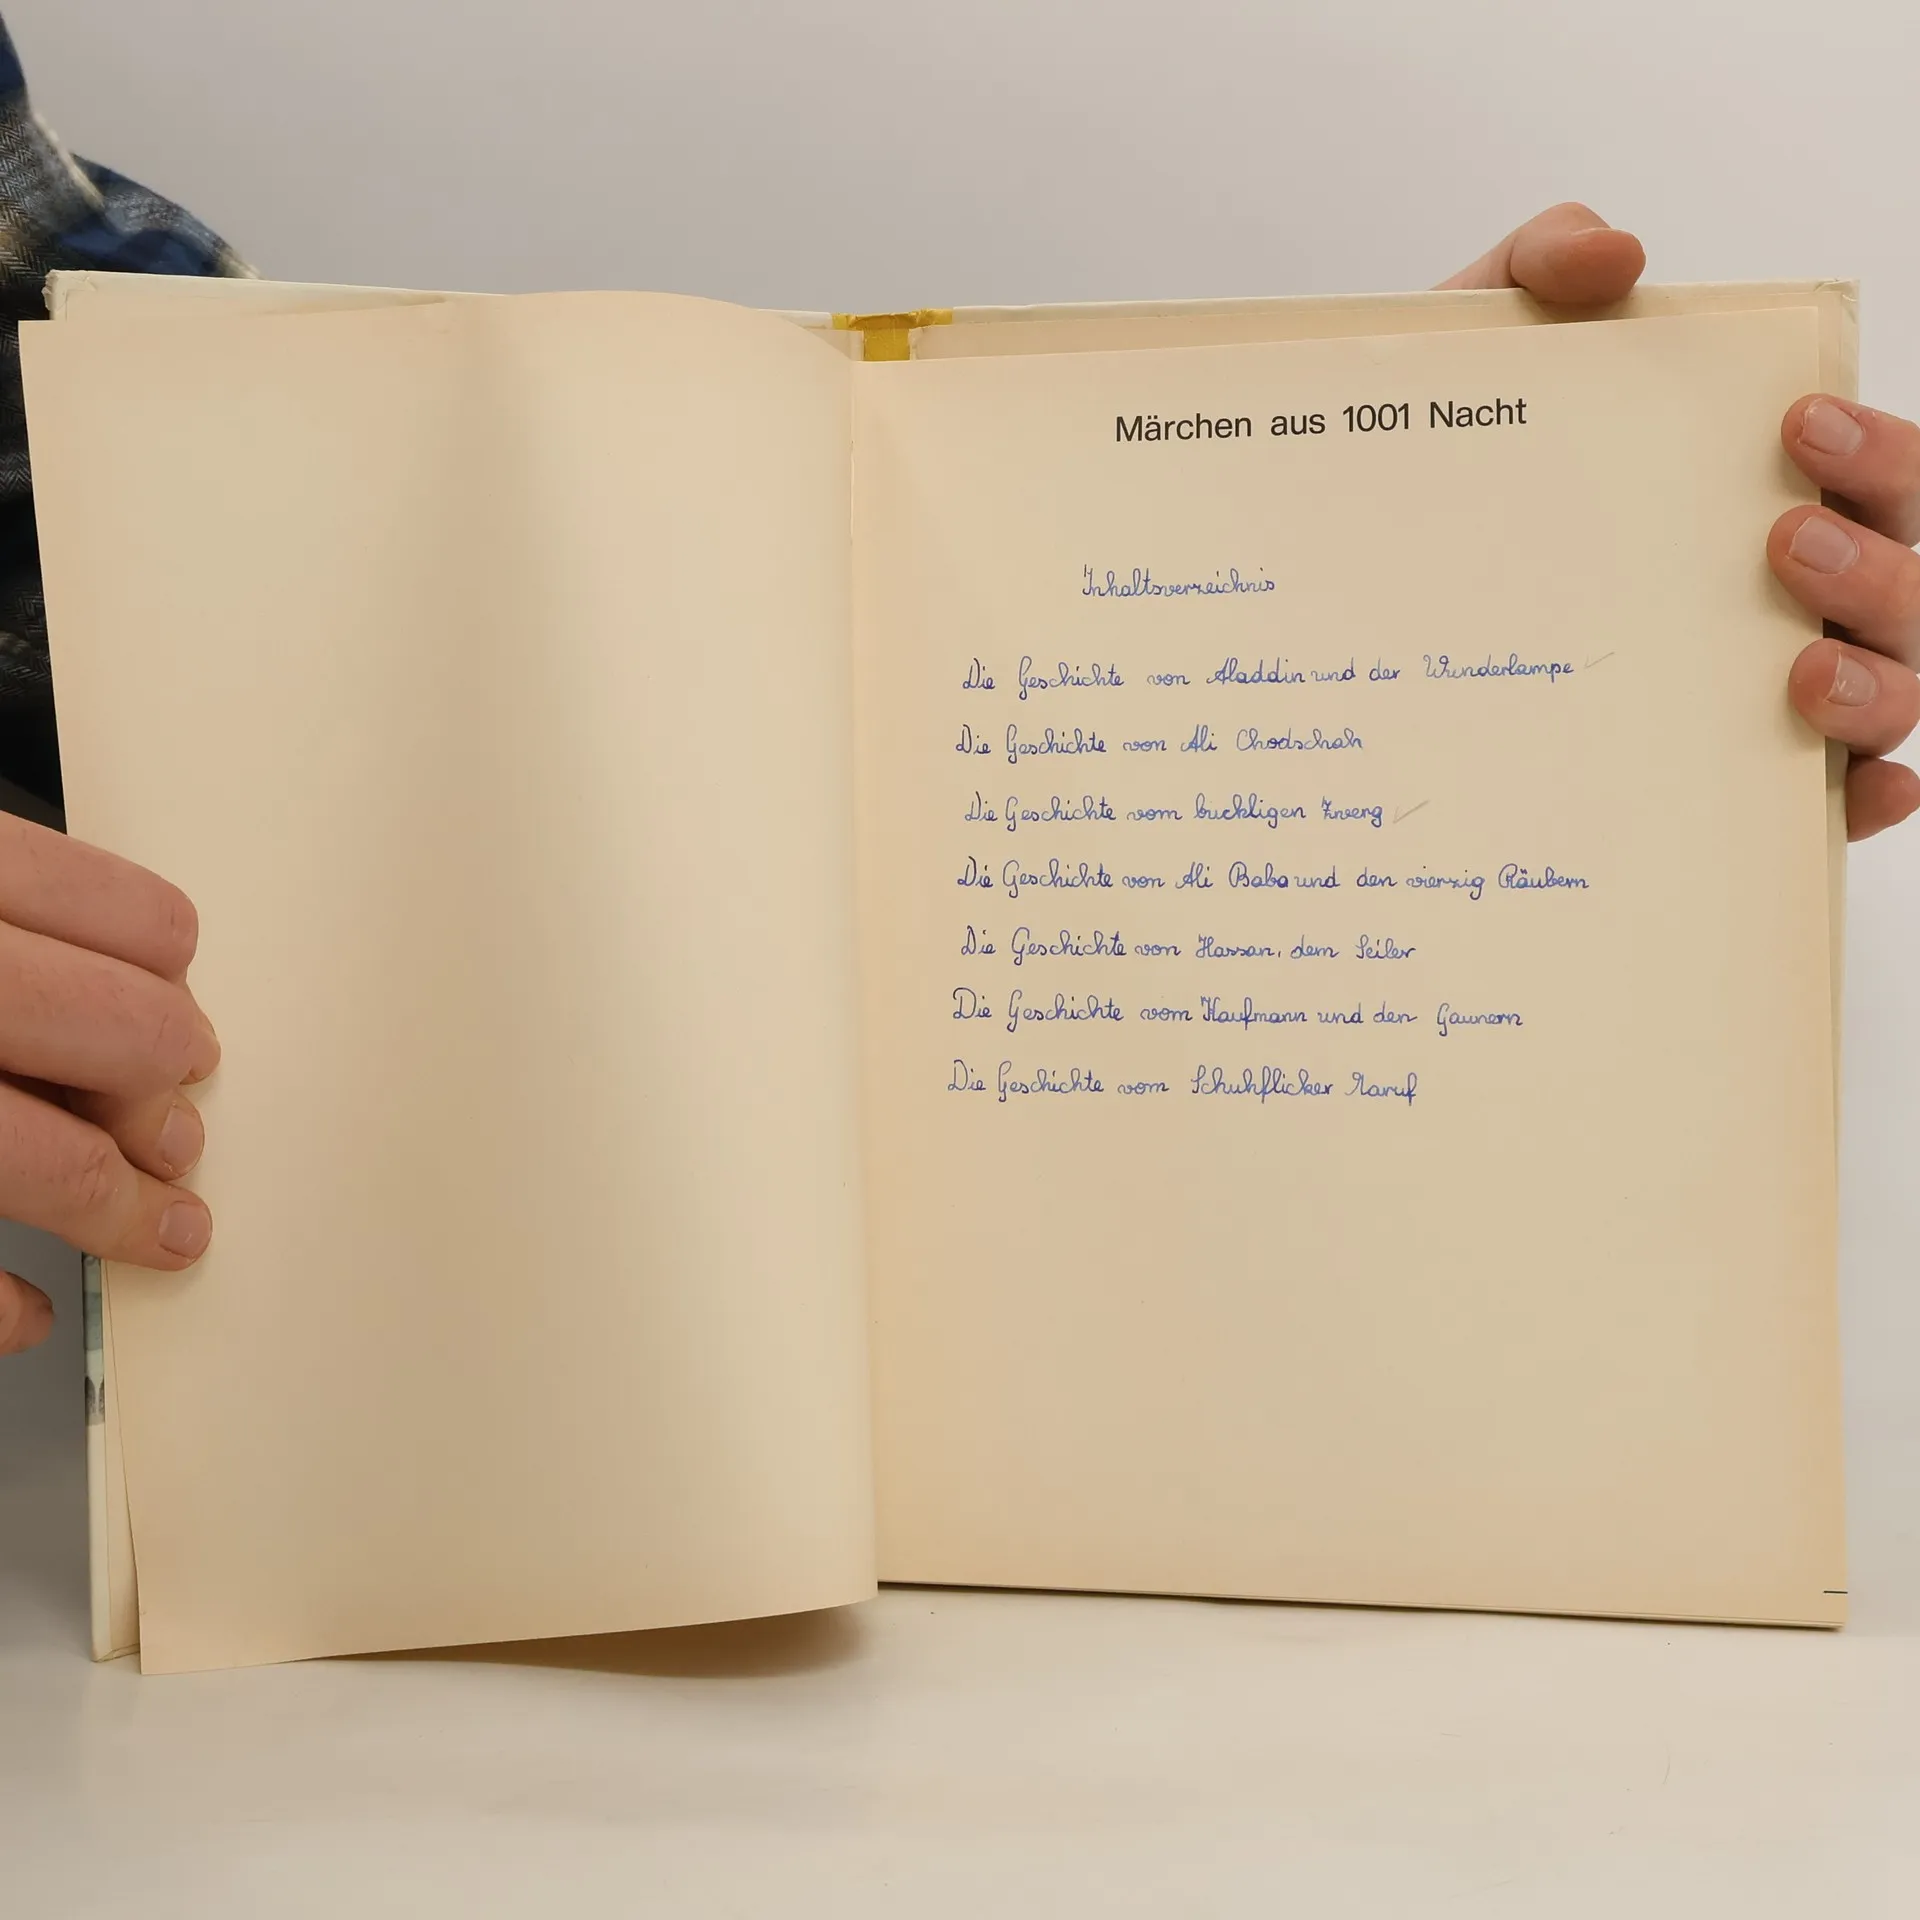 Märchen aus 1001 Nacht
Inhaltsverzeichnis
Die Geschichte von Aladdin und der Wunderlampe
Die Geschichte von Ali Chodschah
Die Geschichte vom buckligen Zwerg
Die Geschichte von Ali Baba und den vierzig Räubern
Die Geschichte von Hassan, dem Seiler
Die Geschichte vom Kaufmann und den Gaunern
Die Geschichte vom Schuhflicker Maruf